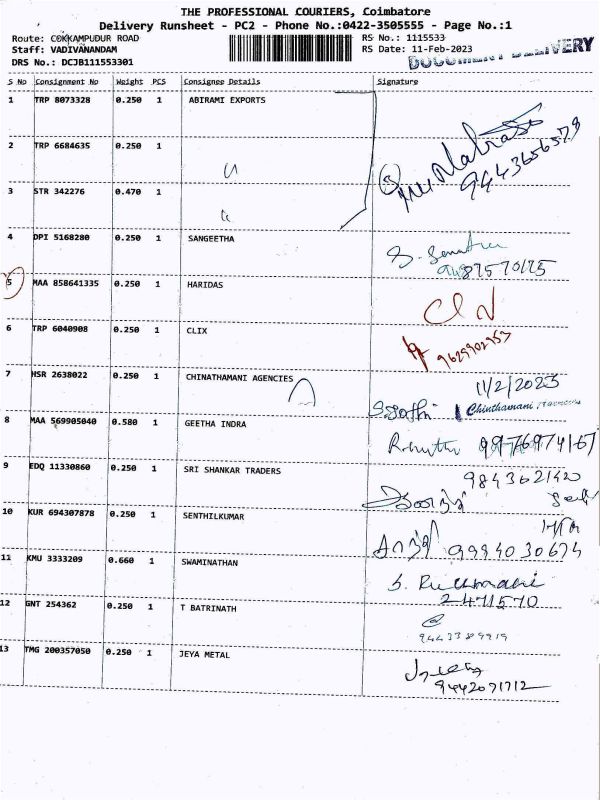 THE PROFESSIONAL COURIERS, Coimbatore
Delivery Runsheet - PC2 - Phone No.:0422-3505555 - Page No.:1
Route: COKKAMPUDUR ROAD
RS No.: 1115533
Staff: VADIVANANDAM
RS Date: 11-Feb-2023
DRS No.: DCJB111553301
DOCUMENT DELIVERY
S No Consignment No Weight PCS Consignee Details Signature
1 TRP 8073328 0.250 1 ABIRAMI EXPORTS
2 TRP 6684635 0.250 1
9443656579
3 STR 342276 0.470 1
4 DPI 5168280 0.250 1 SANGEETHA
5 MAA 858641335 0.250 1 HARIDAS
6 TRP 6040908 0.250 1 CLIX
9629902953
7 HSR 2638022 0.250 1 CHINATHAMANI AGENCIES
11/2/2023
Chinthamani
8 MAA 569905040 0.580 1 GEETHA INDRA
9976974167
9 EDQ 11330860 0.250 1 SRI SHANKAR TRADERS
9843621420
10 KUR 694307878 0.250 1 SENTHILKUMAR
9994030674
11 KMU 3333209 0.660 1 SWAMINATHAN
2471570
12 GNT 254362 0.250 1 T BATRINATH
13 TMG 200357050 0.250 1 JEYA METAL
9442071712